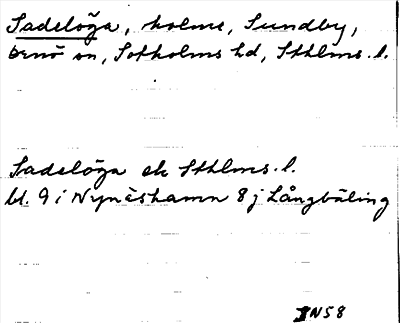 Sadelöga, holme, Sundby,
Ornö sn, Sotholms hd, Sthlms. l.
Sadelöga ek Sthlms. l.
bl. 9 i Nynäshamn 8 j Långbäling
IN58